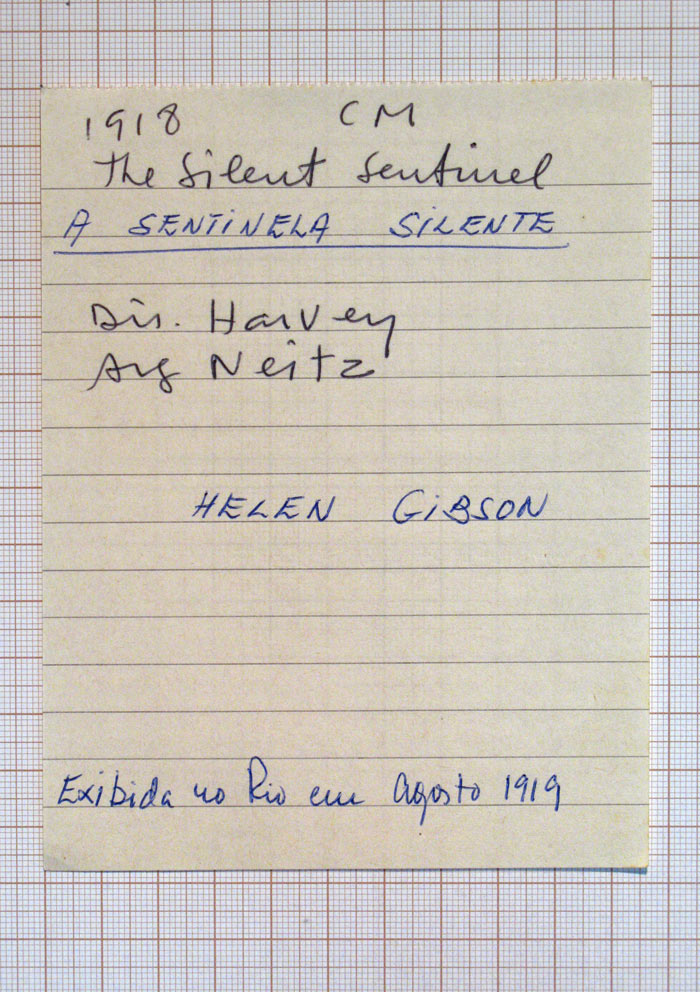 1918 CM
The Silent Sentinel
A SENTINELA SILENTE
Dir. Harvey
Arg Neitz
HELEN GIBSON
Exibida no Rio em Agosto 1919